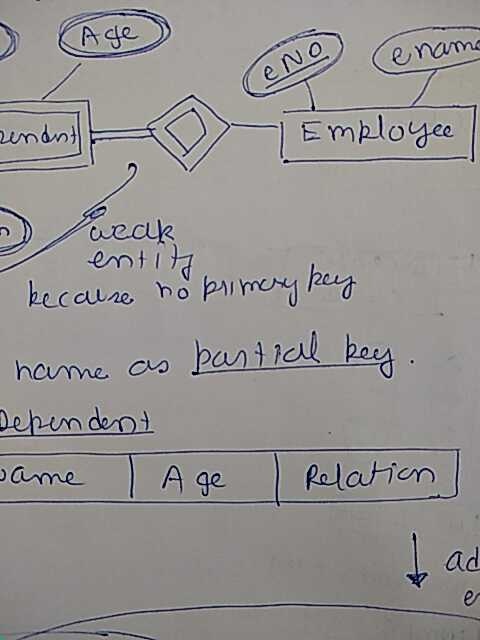 Age
eNO
ename
pendent
Employee
weak
entity
because no primary key
name as partial key.
Dependent
name Age Relation
ad
e